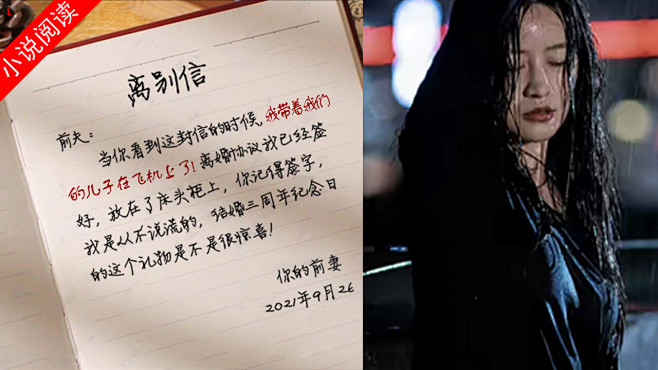 小说阅读
离别信
前夫：
当你看到这封信的时候，我带着我们
的儿子在飞机上了！离婚协议我已经签
好，放在了床头柜上，你记得签字，
我是从不说谎的，结婚三周年纪念日
的这个礼物是不是很惊喜！
你的前妻
2021年9月26